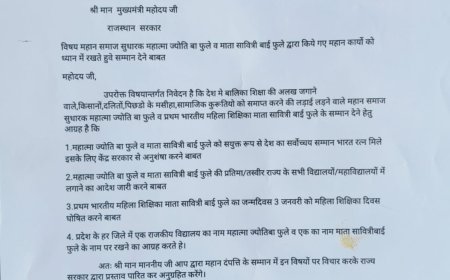 श्री मान मुख्यमंत्री महोदय जी
राजस्थान सरकार
विषय महान समाज सुधारक महात्मा ज्योति बा फुले व माता सावित्री बाई फुले द्वारा किये गए महान कार्यो को
ध्यान में रखते हुवे सम्मान देने बाबत
महोदय जी,
उपरोक्त विषयान्तर्गत निवेदन है कि देश मे बालिका शिक्षा की अलख जगाने
वाले,किसानों,दलितों,पिछडो के मसीहा,सामाजिक कुरूतियो को समाप्त करने की लड़ाई लड़ने वाले महान समाज
सुधारक महात्मा ज्योति बा फुले व प्रथम भारतीय महिला शिक्षिका माता सावित्री बाई फुले के सम्मान देने हेतु
आग्रह है कि
1.महात्मा ज्योति बा फुले व माता सावित्री बाई फुले को सयुक्त रूप से देश का सर्वोच्चय सम्मान भारत रत्न मिले
इसके लिए केंद्र सरकार से अनुशंषा करने बाबत
2.महात्मा ज्योति बा फुले व माता सावित्री बाई फुले की प्रतिमा/तस्वीर राज्य के सभी विद्यालयों/महाविद्यालयों में
लगाने का आदेश जारी करने बाबत
3.प्रथम भारतीय महिला शिक्षिका माता सावित्री बाई फुले का जन्मदिवस 3 जनवरी को महिला शिक्षिका दिवस
घोषित करने बाबत
4. प्रदेश के हर जिले में एक राजकीय विद्यालय का नाम महात्मा ज्योतिबा फुले व एक का नाम माता सावित्रीबाई
फुले के नाम पर रखने का आग्रह करते है।
अतः श्री मान माननीय जी आप द्वारा महान दंपत्ति के सम्मान में इन विषयों पर विचार करके राज्य
सरकार द्वारा प्रस्ताव पारित कर अनुग्रहित करेंगे।